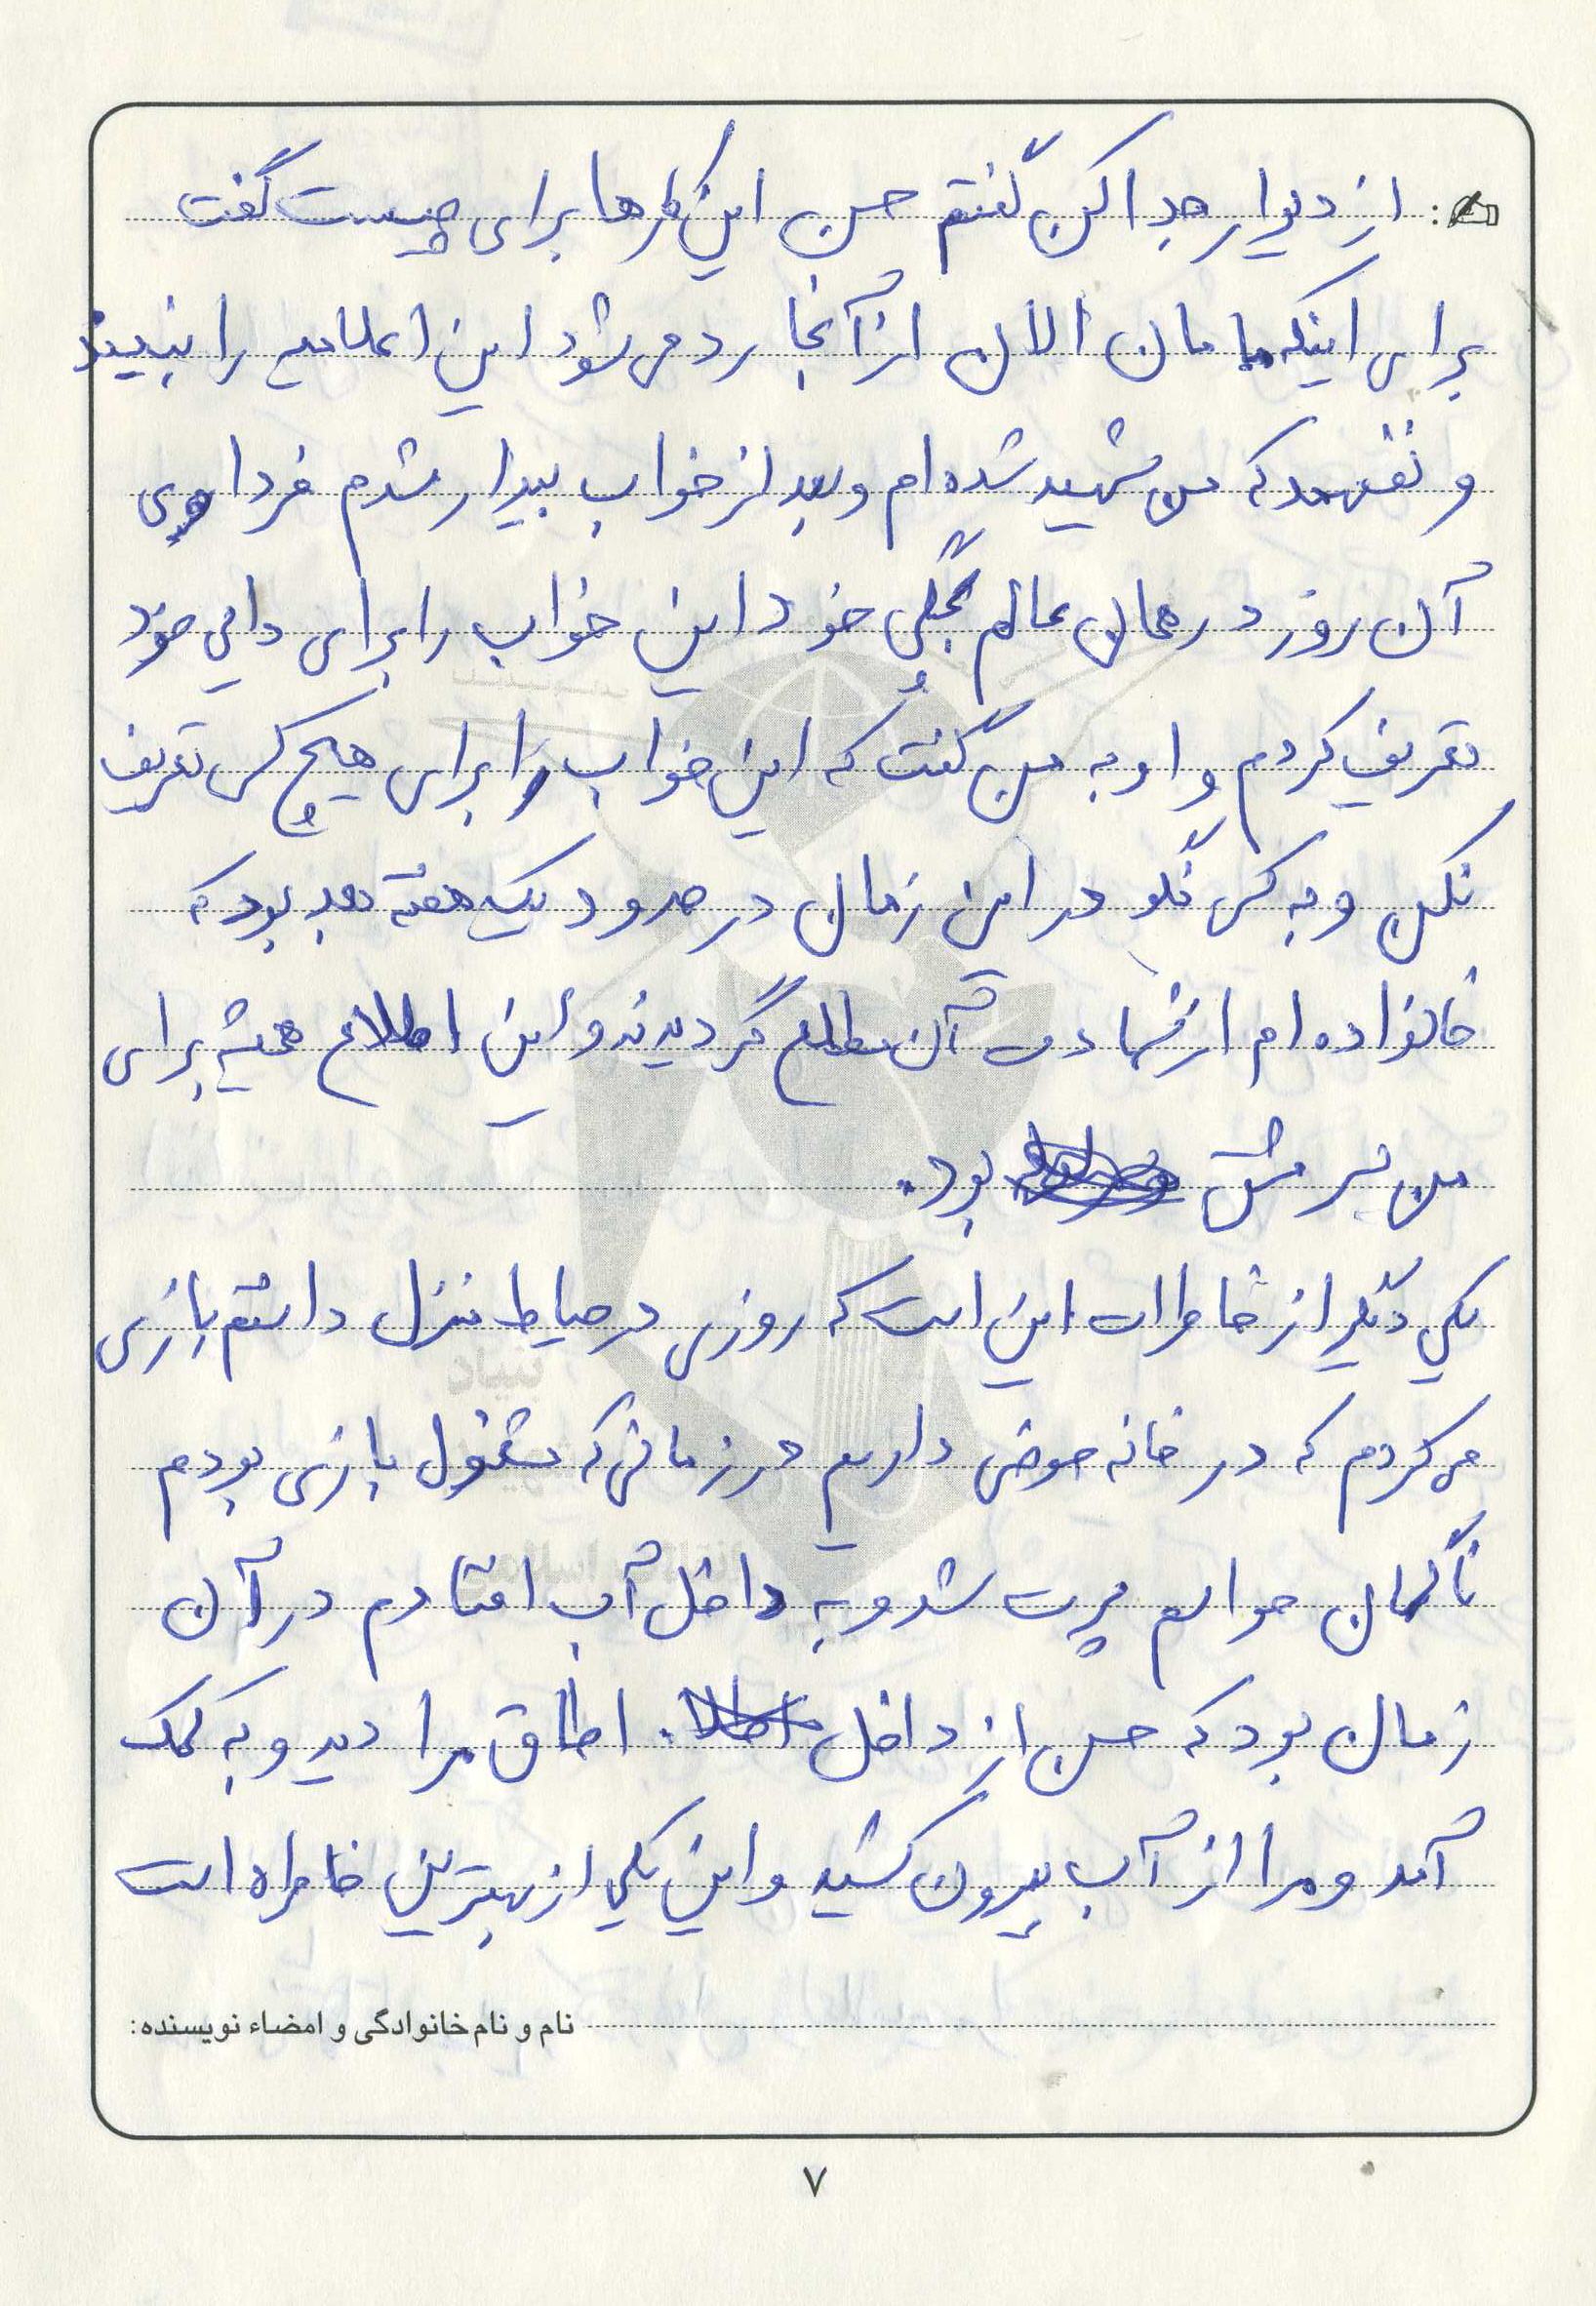 از دیوار جدا کن گفتم حسن این کارها برای چیست گفت
برای اینکه مامان الان از آنجا رد می شود این اعلامیه را نبیند
و نفهمد که من شهید شده ام و بعد از خواب بیدار شدم فردای
آن روز در همان عالم بچگی خود این خواب را برای دایی خود
تعریف کردم و او به من گفت که این خواب را برای هیچ کس تعریف
نکن و به کسی نگو در این زمان در حدود یک هفته بعد بود که
خانواده ام از شهادت آن مطلع گردیدند و این اطلاع همیشه برای
من بود.
یکی دیگر از خاطرات این است که روزی در حیاط منزل داشتم بازی
می کردم که در خانه حوضی داریم در زمانی که مشغول بازی بودم
ناگهان حواسم پرت شد و به داخل آب افتادم در آن
زمان بود که حسن از داخل اطاق مرا دید و به کمک
آمد و مرا از آب بیرون کشید و این یکی از بهترین خاطره است
نام و نام خانوادگی و امضاء نویسنده:
بنیاد
۷